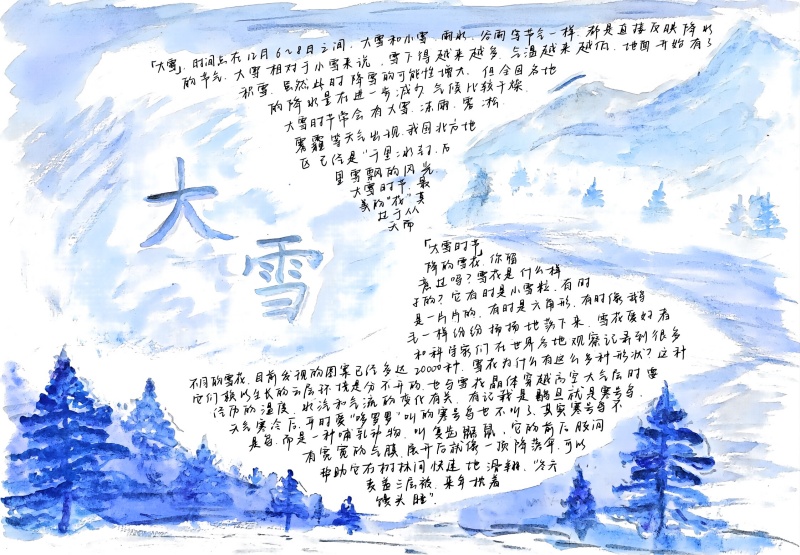 「大雪」时间点在12月6~8日之间，大雪和小雪、雨水、谷雨等节气一样，都是直接反映降水
的节气。大雪相对于小雪来说，雪下得越来越多，气温越来越低，地面开始有了
积雪。虽然此时降雪的可能性增大，但全国各地
的降水量在进一步减少，气候比较干燥。
大雪时节常会有大雪、冻雨、雾凇、
雾霾等天气出现，我国北方地
区已经是“千里冰封，万
里雪飘的风光
大雪时节，最
美的“花”莫
过于从
天而
大
雪
「大雪时节」
降的雪花，你留
意过吗？雪花是什么样
子的？它有时是小雪粒，有时
是一片片的，有时是六角形，有时像鹅
毛一样纷纷扬扬地落下来。雪花爱好者
和科学家们在世界各地观察记录到很多
不同的雪花，目前发现的图案已经多达20000种。雪花为什么有这么多种形状？这种
它们赖以生长的云层环境是分不开的，也与雪花晶体穿越高空大气层时要
经历的温度、水汽和气流的变化有关。有记载是鹖旦就是寒号鸟，
天气寒冷后，平时爱“哆罗罗”叫的寒号鸟也不叫了。其实寒号鸟不
是鸟，而是一种哺乳动物，叫复齿鼯鼠，它的前后肢间
有宽宽的飞膜，展开后就像一顶降落伞，可以
帮助它在树林间快速地滑翔。“冬天
麦盖三层被，来年枕着
馒头睡”